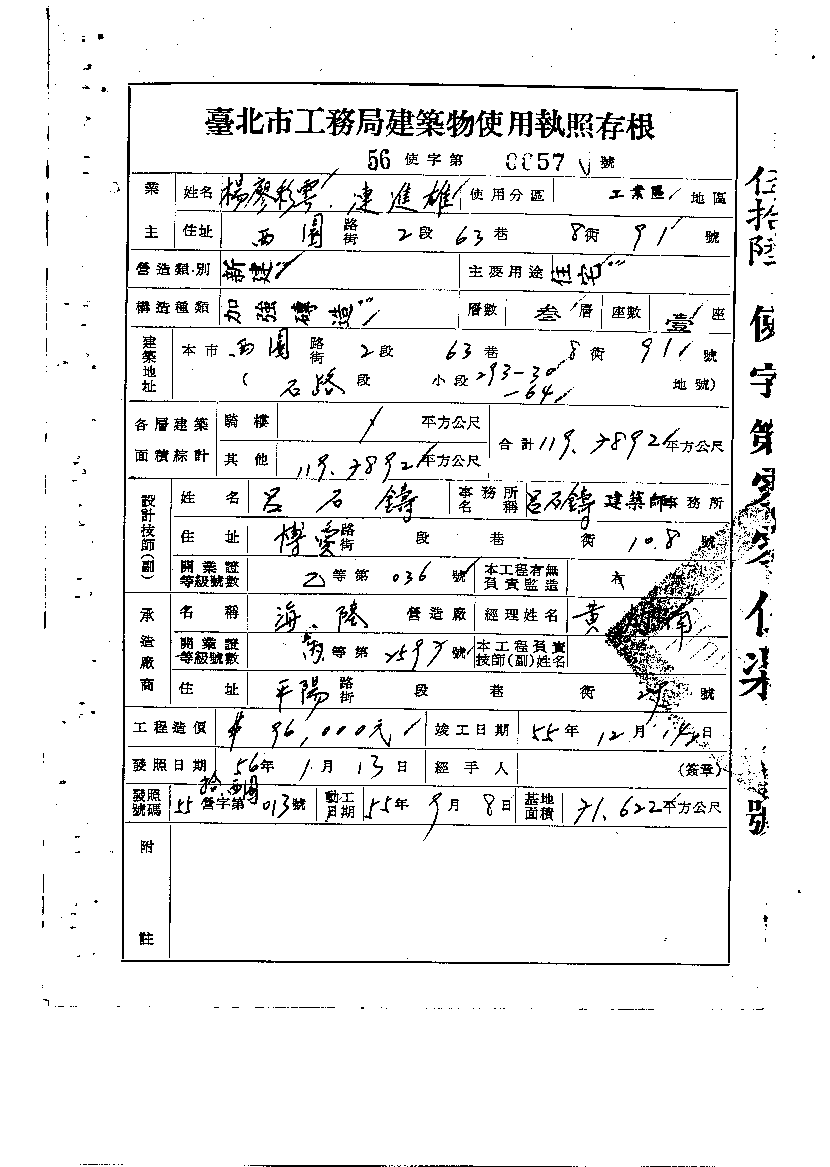 臺北市工務局建築物使用執照存根
56 使字第 0057 號
業主 姓名 楊廖彩雲.連進雄 使用分區 工業區 地區
住址 西園 路街 2 段 63 巷 8 街 91 號
營造類別 新建 主要用途 住宅
構造種類 加強磚造 層數 叁 層 座數 壹 座
建築地址 本市 西園 路街 2 段 63 巷 8 街 91 號
( 石路 段 小段 293-30 地號)
-64
各層建築面積綜計 騎樓 平方公尺 合計 119.7892 平方公尺
其他 119.7892 平方公尺
設計技師(副) 姓名 呂石鑄 事務所名稱 呂石鑄建築師事務所
住址 博愛 路街 段 巷 街 108 號
開業證等級號數 乙等第 036 號 本工程有無負責監造 有
承造廠商 名稱 海陸 營造廠 經理姓名 黃
開業證等級號數 等第 號 本工程負責技師(副)姓名
住址 平陽 路街 段 巷 街 號
工程造價 $ 96,000元 竣工日期 55年12月14日
發照日期 56年1月13日 經手人 (簽章)
發照號碼 55 拾西園 營字第 013 號 動工日期 55年9月8日 基地面積 71.622 平方公尺
附註
伍拾陸使字第零零伍柒號